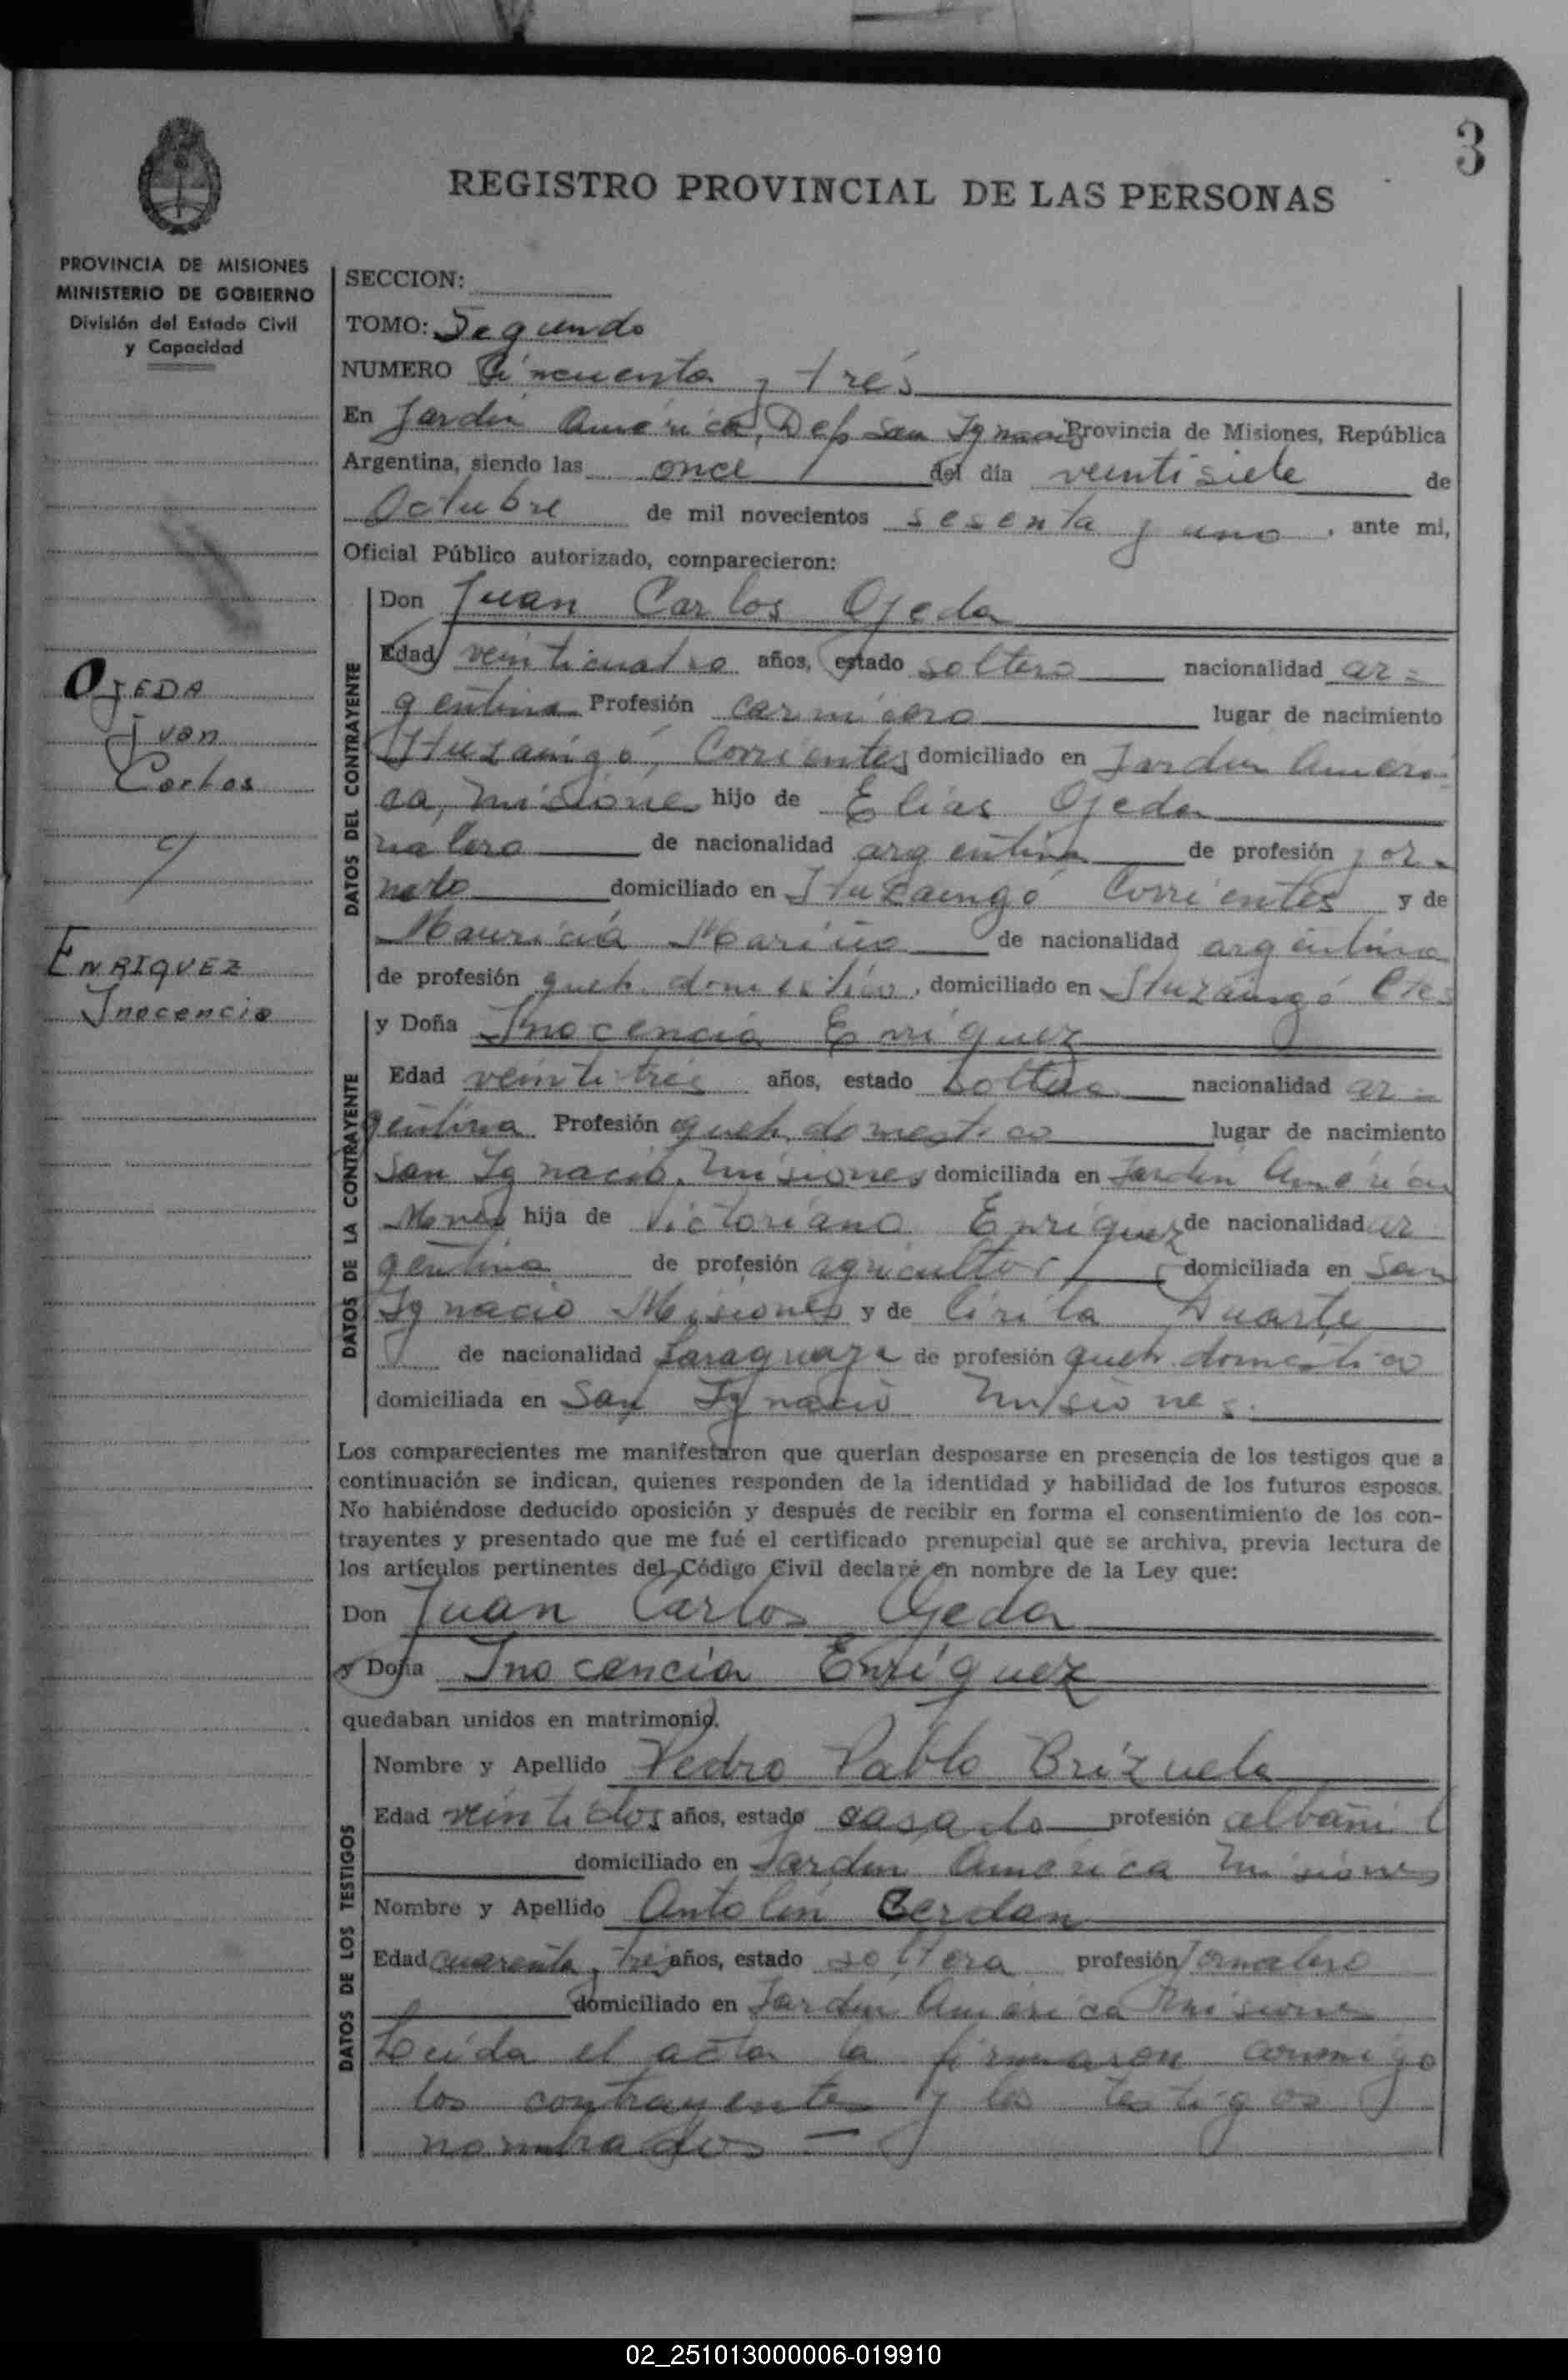 3
REGISTRO PROVINCIAL DE LAS PERSONAS
PROVINCIA DE MISIONES
MINISTERIO DE GOBIERNO
División del Estado Civil
y Capacidad
OJEDA
Juan
Carlos
c/
ENRIQUEZ
Inocencia
SECCION:
TOMO: Segundo
NUMERO Cincuenta y tres
En Jardín América, Dep San Ignacio Provincia de Misiones, República
Argentina, siendo las once del día veintisiete de
Octubre de mil novecientos sesenta y uno, ante mi,
Oficial Público autorizado, comparecieron:
DATOS DEL CONTRAYENTE
Don Juan Carlos Ojeda
Edad veinticuatro años, estado soltero nacionalidad ar=
gentina Profesión carnicero lugar de nacimiento
Ituzaingó, Corrientes domiciliado en Jardín Améri
ca, Misiones hijo de Elias Ojeda
nalero de nacionalidad argentina de profesión jor-
domiciliado en Ituzaingó Corrientes y de
Mauricia Mariño de nacionalidad argentina
de profesión queh. doméstico, domiciliado en Ituzaingó Ctes
DATOS DE LA CONTRAYENTE
y Doña Inocencia Enriquez
Edad veintitrés años, estado soltera nacionalidad ar=
gentina Profesión queh. domestico lugar de nacimiento
San Ignacio. Misiones domiciliada en Jardín América
Mnes hija de Victoriano Enriquez de nacionalidad ar
gentina de profesión agricultor domiciliada en San
Ignacio Misiones y de Cirila Duarte
de nacionalidad Paraguaya de profesión queh. domestico
domiciliada en San Ignacio Misiones.
Los comparecientes me manifestaron que querían desposarse en presencia de los testigos que a
continuación se indican, quienes responden de la identidad y habilidad de los futuros esposos.
No habiéndose deducido oposición y después de recibir en forma el consentimiento de los con-
trayentes y presentado que me fué el certificado prenupcial que se archiva, previa lectura de
los artículos pertinentes del Código Civil declaré en nombre de la Ley que:
Don Juan Carlos Ojeda
y Doña Inocencia Enríquez
quedaban unidos en matrimonio.
DATOS DE LOS TESTIGOS
Nombre y Apellido Pedro Pablo Brizuela
Edad veintidos años, estado casado profesión albañil
domiciliado en Jardín América Misiones
Nombre y Apellido Antolín Cerdan
Edad cuarenta y tres años, estado soltero profesión Jornalero
domiciliado en Jardín América Misiones
Leída el acta la firmaron conmigo
los contrayentes y los testigos
nombrados —
02_251013000006-019910